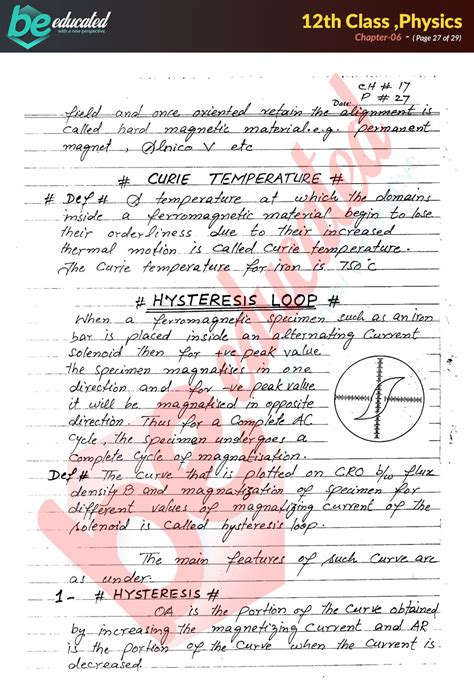 be educated
with a new perspective
12th Class ,Physics
Chapter-06 - ( Page 27 of 29)
CH # 17
P # 27
Date:
field and once oriented retain the alignment is
called hard magnetic material.e.g. permanent
magnet, Alnico V etc
# CURIE TEMPERATURE #
# Def # A temperature at which the domains
inside a ferromagnetic material begin to lose
their orderliness due to their increased
thermal motion is called Curie temperature.
The Curie temperature for iron is 750°C
# HYSTERESIS LOOP #
When a ferromagnetic specimen such as an iron
bar is placed inside an alternating Current
solenoid then for +ve peak value
the specimen magnatises in one
direction and for -ve peak value
it will be magnatised in opposite
direction. Thus for a Complete AC
Cycle, the specimen undergoes a
Complete cycle of magnatisation.
Def # The curve that is plotted on CRO b/w flux
density B and magnatization of specimen for
different values of magnatizing current of the
solenoid is called hysteresis loop.
The main features of such Curve are
as under.
1- # HYSTERESIS #
OA is the portion of the curve obtained
by increasing the magnetizing Current and AR
is the portion of the Curve when the Current is
decreased.